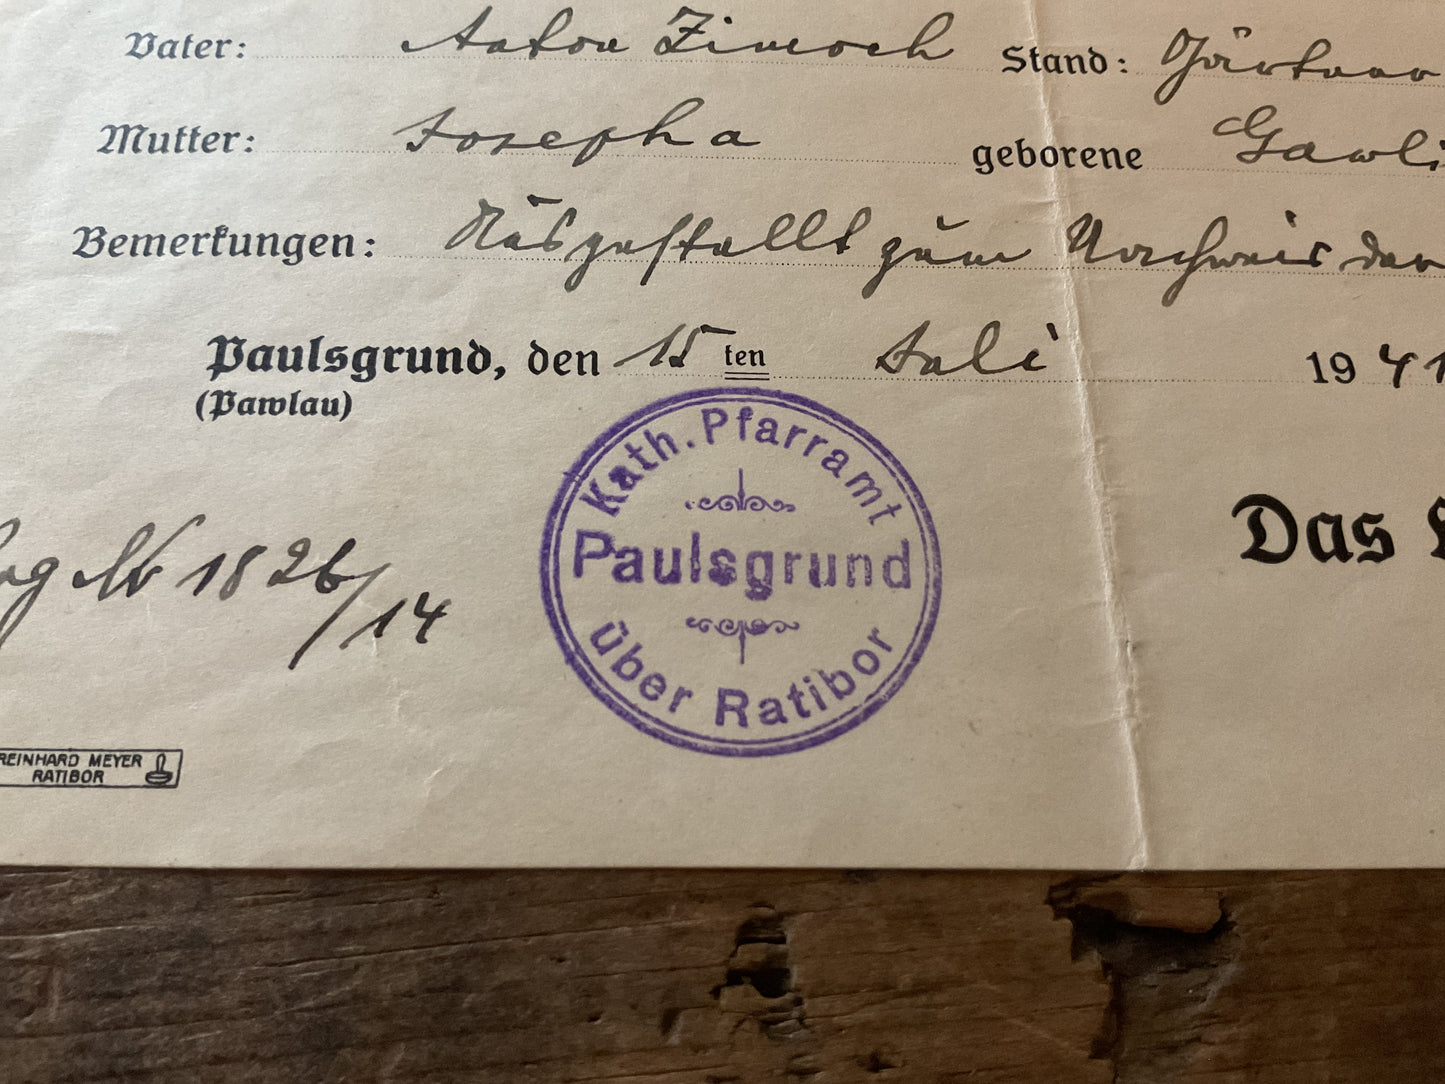 Vater: Anton Zimoch Stand: Gärtner
Mutter: Josepha geborene Gawli
Bemerkungen: Ausgestellt zum Nachweis der
Paulsgrund, den 15 ten Juli 1941
(Pawlau)
Kath. Pfarramt
Paulsgrund
über Ratibor
Das
Nr 1826/14
REINHARD MEYER
RATIBOR